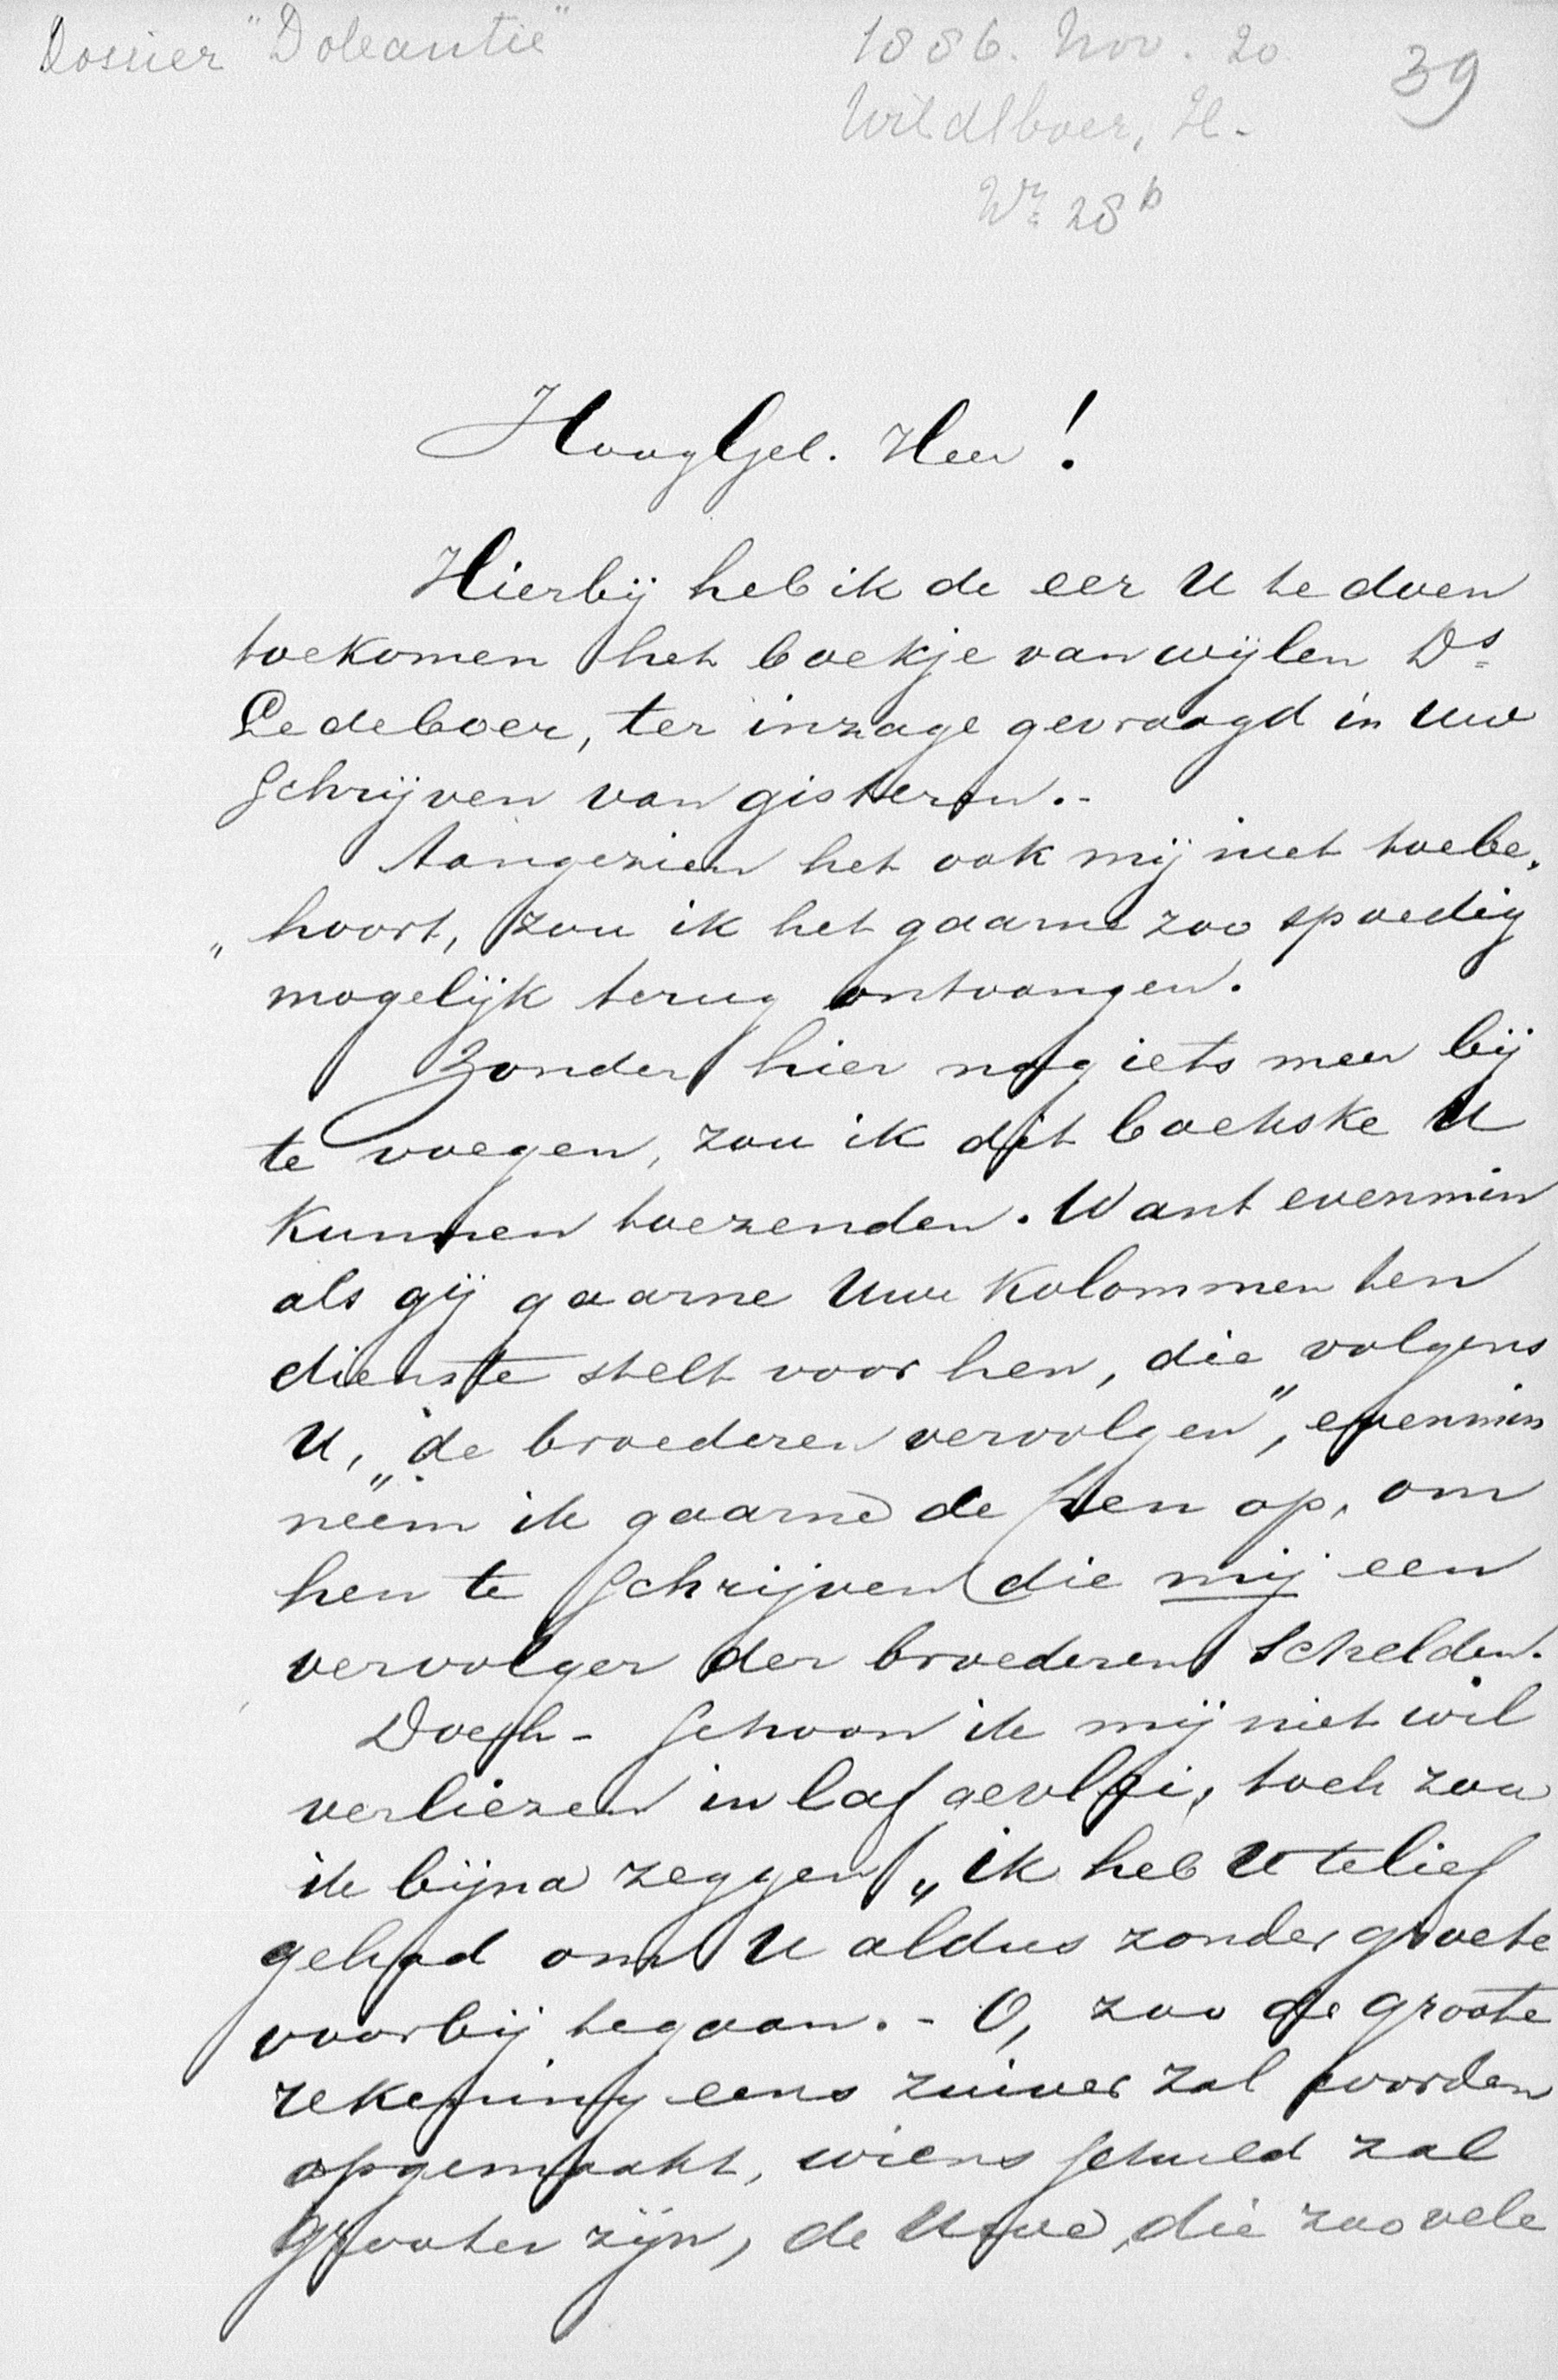 Dossier "Doleantie" 1886. Nov. 20. 39
Wildeboer, H.
Wr 28b
HoogGel. Heer!
Hierbij heb ik de eer U te doen
toekomen het boekje van wijlen Ds
Ledeboer, ter inzage gevraagd in Uw
schrijven van gisteren.-
Aangezien het ook mij niet toebe„
„hoort, zou ik het gaarne zoo spoedig
mogelijk terug ontvangen.
Zonder hier nog iets meer bij
te voegen, zou ik dit boekske U
kunnen toezenden. Want evenmin
als gij gaarne Uwe kolommen ten
dienste stelt voor hen, die volgens
U, „de broederen vervolgen", evenmin
neem ik gaarne de pen op, om
hen te schrijven die mij een
vervolger der broederen schelden.
Doch - schoon ik mij niet wil
verliezen in laf gevlei, toch zou
ik bijna zeggen „ik heb U te lief
gehad om U aldus zonder groete
voorbij te gaan. - O, zoo de groote
rekening eens zuiver zal worden
opgemaakt, wiens schuld zal
grooter zijn, de Uwe, die zoo vele